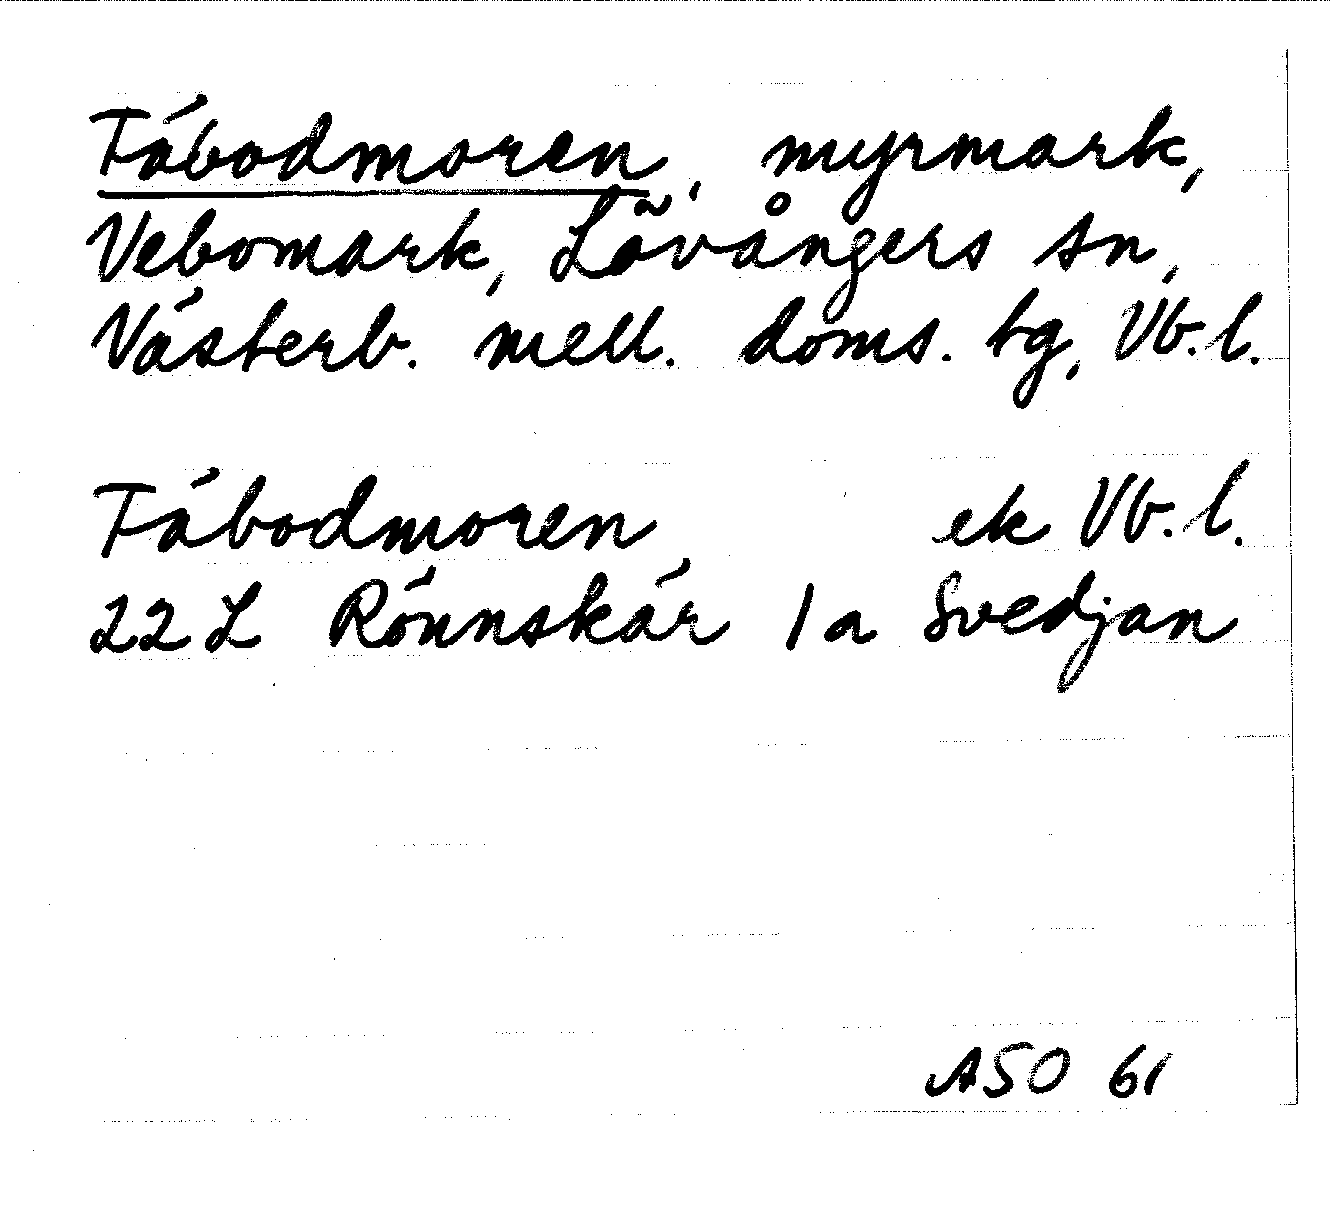 Täbodmoren, myrmark,
Vebomark, Lövångers sn,
Västerb. mell. doms. tg, Vb. l.
Täbodmoren ek Vb. l.
22 L Rönnskär 1 a Svedjan
ASO 61